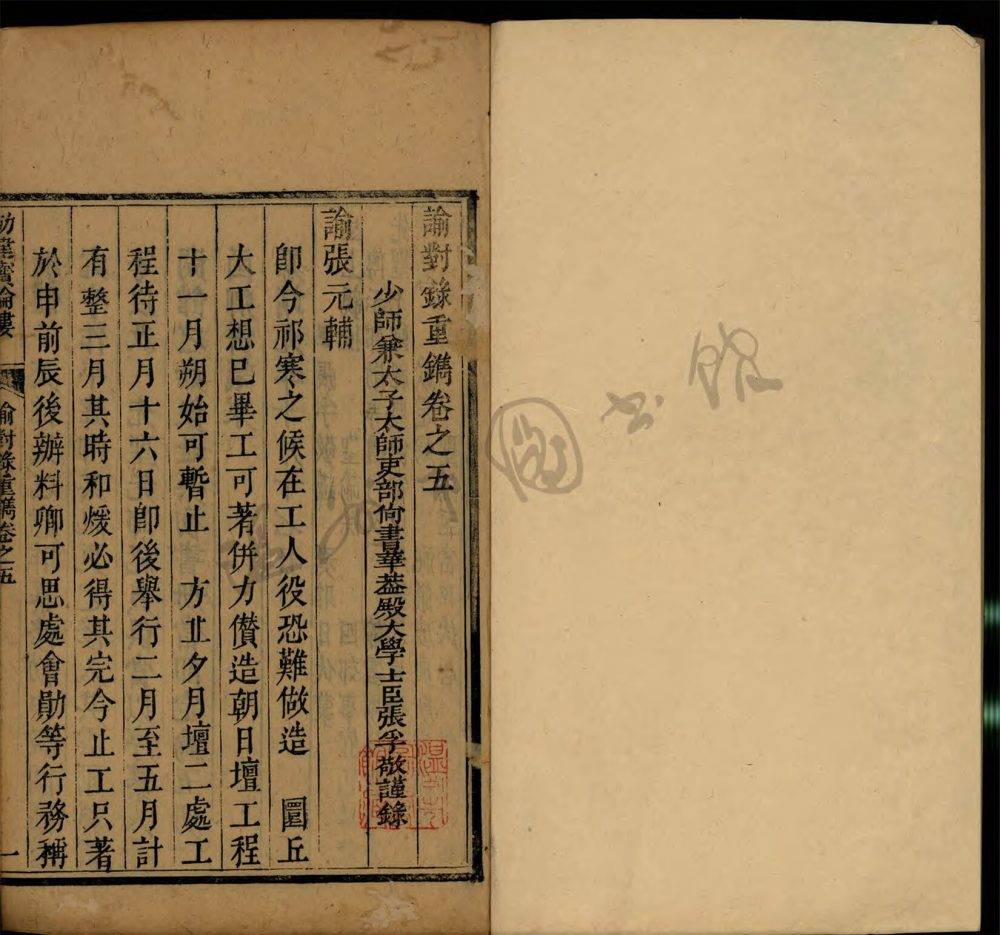 諭對錄重鐫卷之五
少師兼太子太師吏部尙書華葢殿大學士臣張孚敬謹錄
諭張元輔
卽今祁寒之候在工人役恐難做造　圜丘
大工想已畢工可著併力儹造朝日壇工程
十一月朔始可暫止　方丠夕月壇二處工
程待正月十六日卽後舉行二月至五月計
有整三月其時和煖必得其完今止工只著
於申前辰後辦料卿可思處會勛等行務稱
寶綸樓
諭對錄重鐫卷之五
一